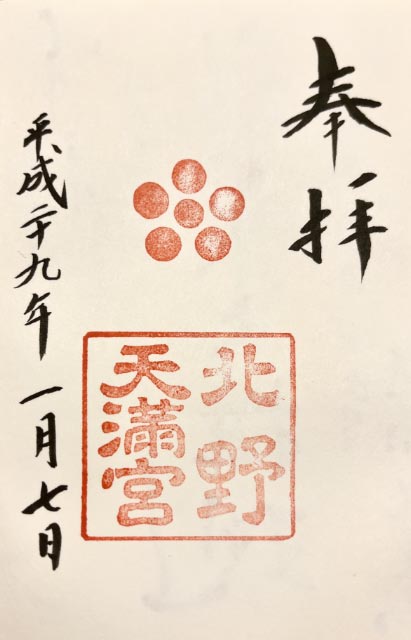 奉拝
北野
天満宮
平成二十九年一月七日